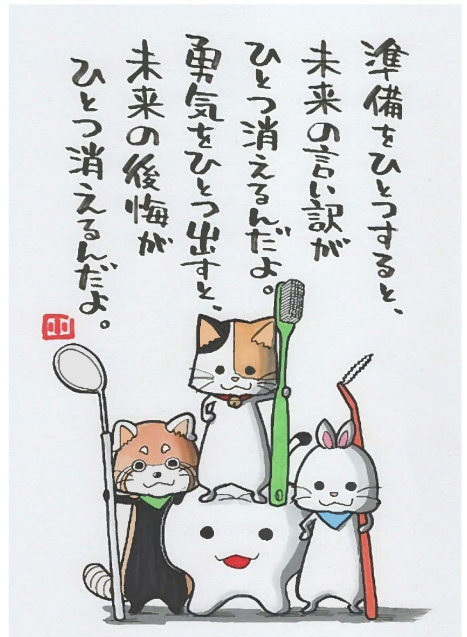 準備をひとつすると、
未来の言い訳が
ひとつ消えるんだよ。
勇気をひとつ出すと、
未来の後悔が
ひとつ消えるんだよ。